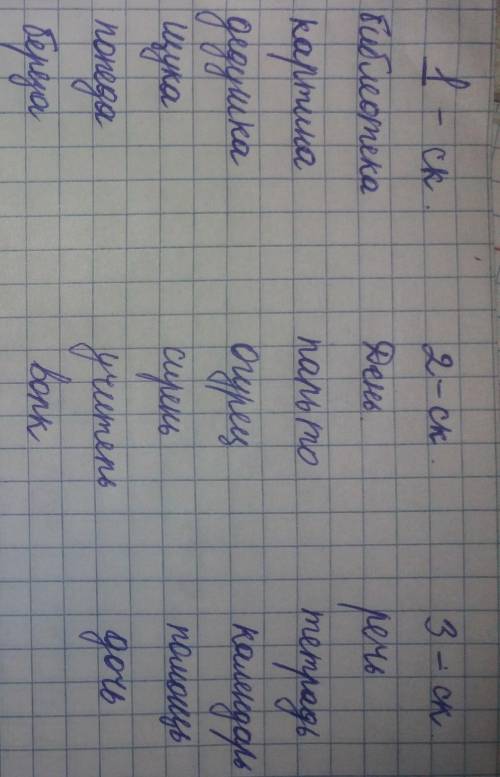 1 - ск. 2 - ск. 3 - ск
библиотека День. речь
картина пальто тетрадь
дедушка Огурец календарь
щука сирень помощь
учитель дочь
береза волк